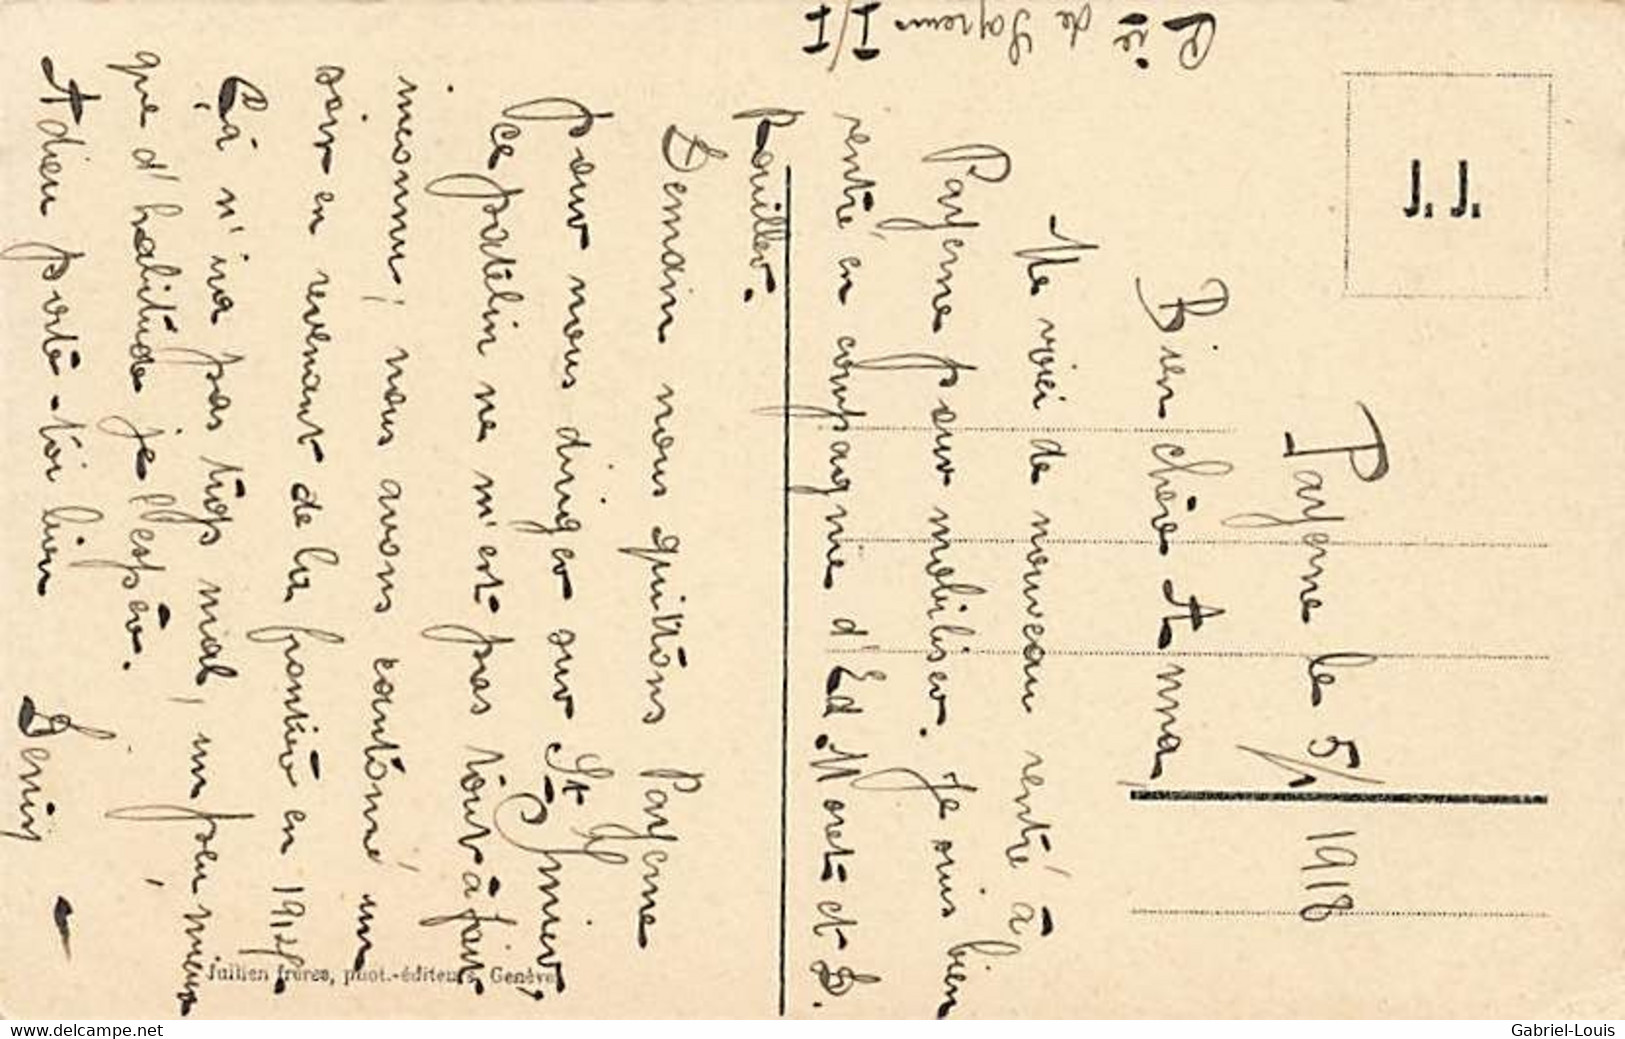 Payerne le 5/1 1918
Bien chère Anna
Me voici de nouveau rentré à
Payerne pour mobiliser. Je suis bien
rentré en compagnie d'Ed. Moret et D.
Rouiller.
Demain nous quittons Payerne
pour nous diriger sur St Imier,
ce patelin ne m'est pas tout à fait
inconnu; nous avons cantonné un
soir en revenant de la frontière en 1914
Çà n'ira pas trop mal, un peu mieux
que d'habitude je l'espère.
Adieu porte-toi bien
Cie de I/I
J. J.
Jullien frères, phot.-éditeurs, Genève
www.delcampe.net
Gabriel-Louis